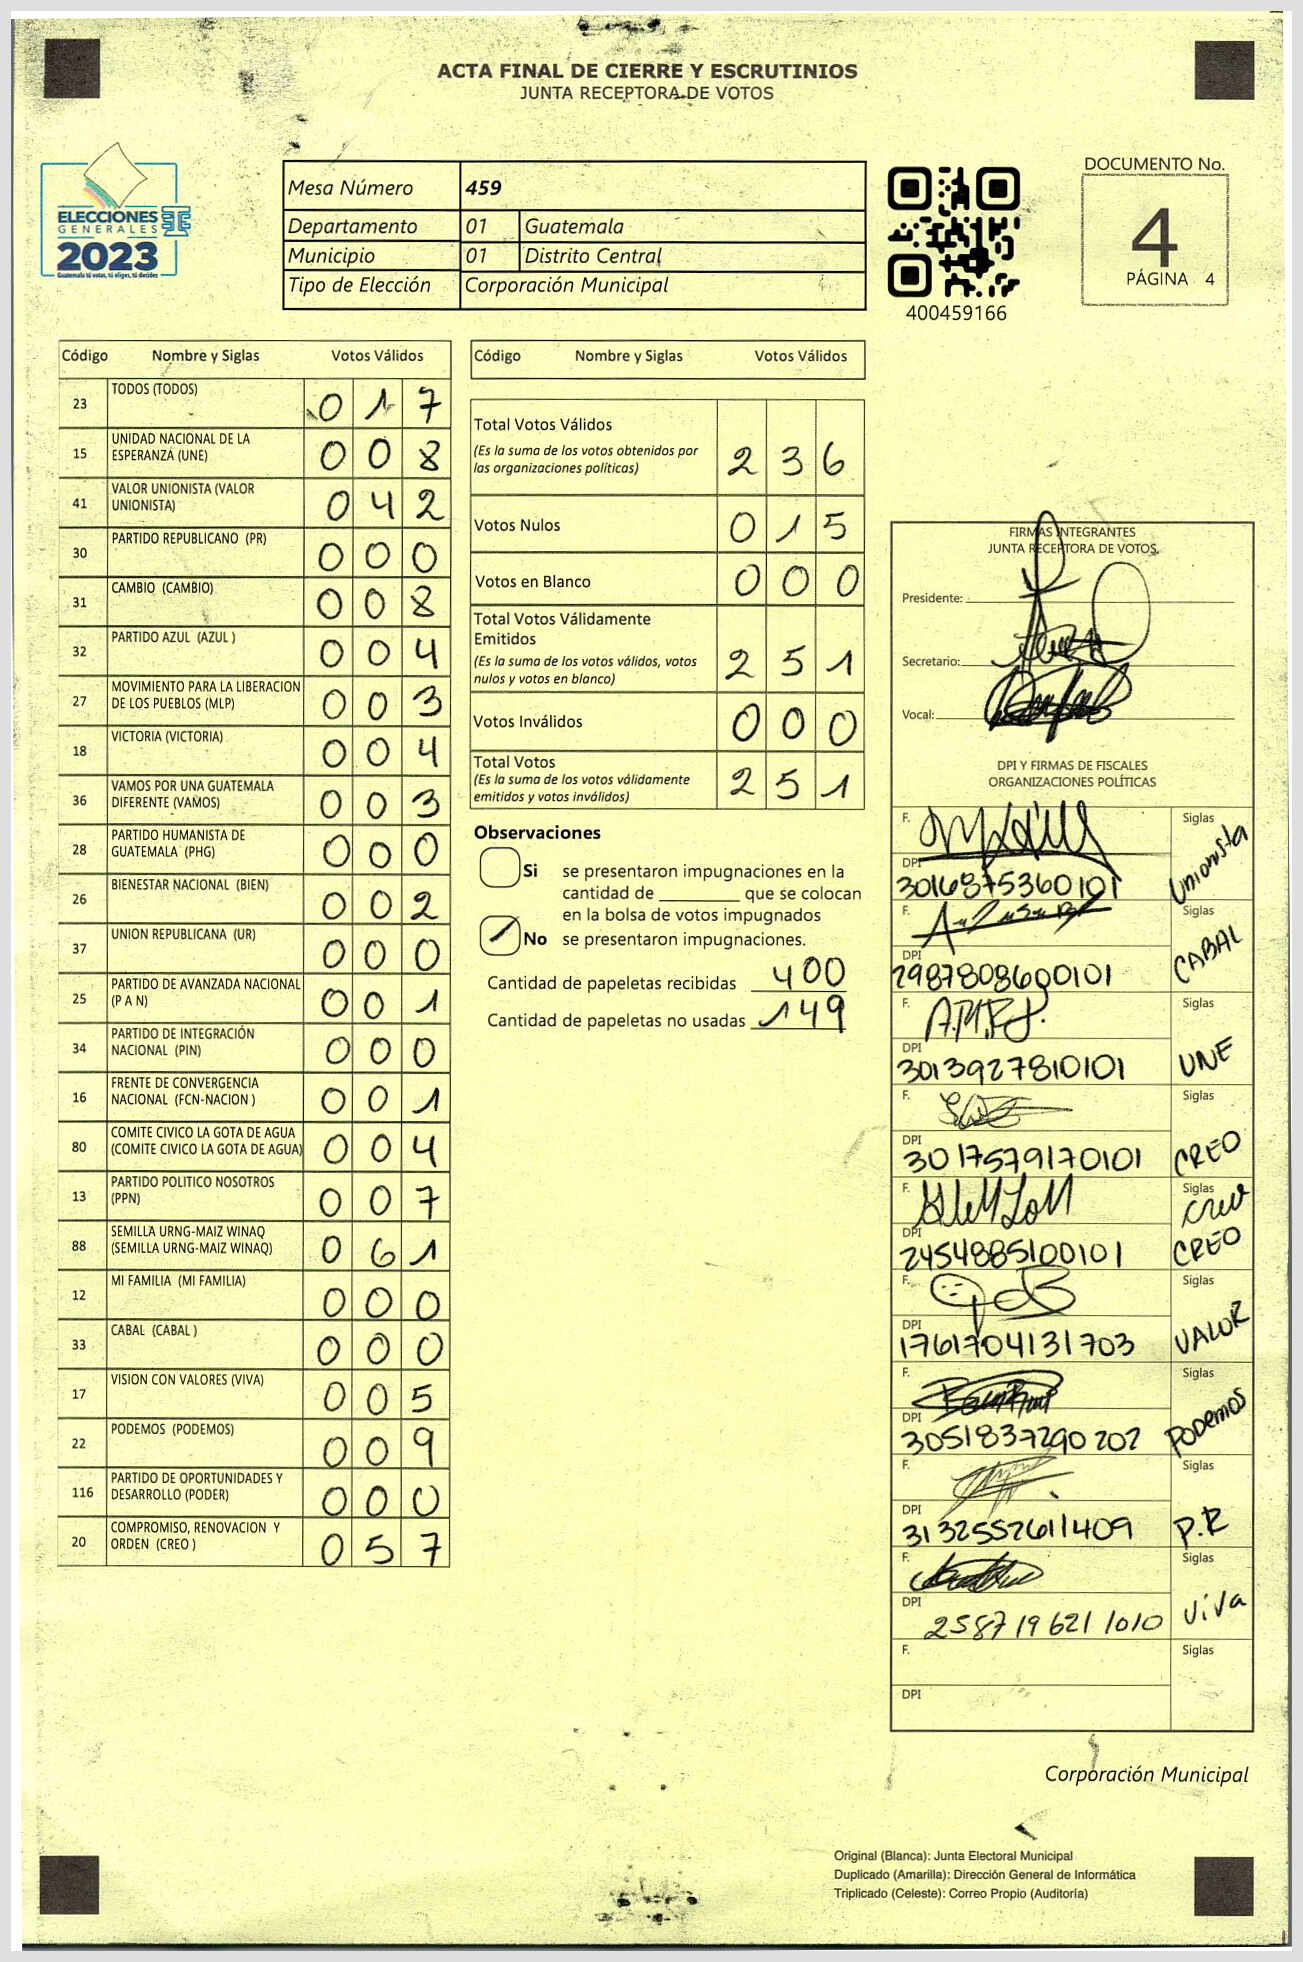 ACTA FINAL DE CIERRE Y ESCRUTINIOS
JUNTA RECEPTORA DE VOTOS
ELECCIONES
GENERALES
2023
Guatemala tú votas, tú eliges, tú decides
Mesa Número 459
Departamento 01 Guatemala
Municipio 01 Distrito Central
Tipo de Elección Corporación Municipal
400459166
DOCUMENTO No.
4
PÁGINA 4
Código Nombre y Siglas Votos Válidos
23 TODOS (TODOS) 0 1 7
15 UNIDAD NACIONAL DE LA ESPERANZA (UNE) 0 0 8
41 VALOR UNIONISTA (VALOR UNIONISTA) 0 4 2
30 PARTIDO REPUBLICANO (PR) 0 0 0
31 CAMBIO (CAMBIO) 0 0 8
32 PARTIDO AZUL (AZUL ) 0 0 4
27 MOVIMIENTO PARA LA LIBERACION DE LOS PUEBLOS (MLP) 0 0 3
18 VICTORIA (VICTORIA) 0 0 4
36 VAMOS POR UNA GUATEMALA DIFERENTE (VAMOS) 0 0 3
28 PARTIDO HUMANISTA DE GUATEMALA (PHG) 0 0 0
26 BIENESTAR NACIONAL (BIEN) 0 0 2
37 UNION REPUBLICANA (UR) 0 0 0
25 PARTIDO DE AVANZADA NACIONAL (P A N) 0 0 1
34 PARTIDO DE INTEGRACIÓN NACIONAL (PIN) 0 0 0
16 FRENTE DE CONVERGENCIA NACIONAL (FCN-NACION ) 0 0 1
80 COMITE CIVICO LA GOTA DE AGUA (COMITE CIVICO LA GOTA DE AGUA) 0 0 4
13 PARTIDO POLITICO NOSOTROS (PPN) 0 0 7
88 SEMILLA URNG-MAIZ WINAQ (SEMILLA URNG-MAIZ WINAQ) 0 6 1
12 MI FAMILIA (MI FAMILIA) 0 0 0
33 CABAL (CABAL ) 0 0 0
17 VISION CON VALORES (VIVA) 0 0 5
22 PODEMOS (PODEMOS) 0 0 9
116 PARTIDO DE OPORTUNIDADES Y DESARROLLO (PODER) 0 0 0
20 COMPROMISO, RENOVACION Y ORDEN (CREO ) 0 5 7
Código Nombre y Siglas Votos Válidos
Total Votos Válidos 2 3 6
(Es la suma de los votos obtenidos por
las organizaciones políticas)
Votos Nulos 0 1 5
Votos en Blanco 0 0 0
Total Votos Válidamente
Emitidos 2 5 1
(Es la suma de los votos válidos, votos
nulos y votos en blanco)
Votos Inválidos 0 0 0
Total Votos 2 5 1
(Es la suma de los votos válidamente
emitidos y votos inválidos)
Observaciones
Si se presentaron impugnaciones en la
cantidad de ________ que se colocan
en la bolsa de votos impugnados
No se presentaron impugnaciones.
Cantidad de papeletas recibidas 400
Cantidad de papeletas no usadas 149
FIRMAS INTEGRANTES
JUNTA RECEPTORA DE VOTOS.
Presidente:
Secretario:
Vocal:
DPI Y FIRMAS DE FISCALES
ORGANIZACIONES POLÍTICAS
F. Siglas Unionista
DPI 3016875360101
F. Siglas CABAL
DPI 2987808600101
F. A.M.F.J. Siglas UNE
DPI 3013927810101
F. Siglas CREO
DPI 3017579170101
F. Siglas creo
DPI 2454885100101 CREO
F. Siglas VALOR
DPI 1761704131703
F. Siglas Podemos
DPI 3051837290202
F. Siglas P.R
DPI 3132552611409
F. Siglas viva
DPI 2587196211010
F. Siglas
DPI
Corporación Municipal
Original (Blanca): Junta Electoral Municipal
Duplicado (Amarilla): Dirección General de Informática
Triplicado (Celeste): Correo Propio (Auditoría)